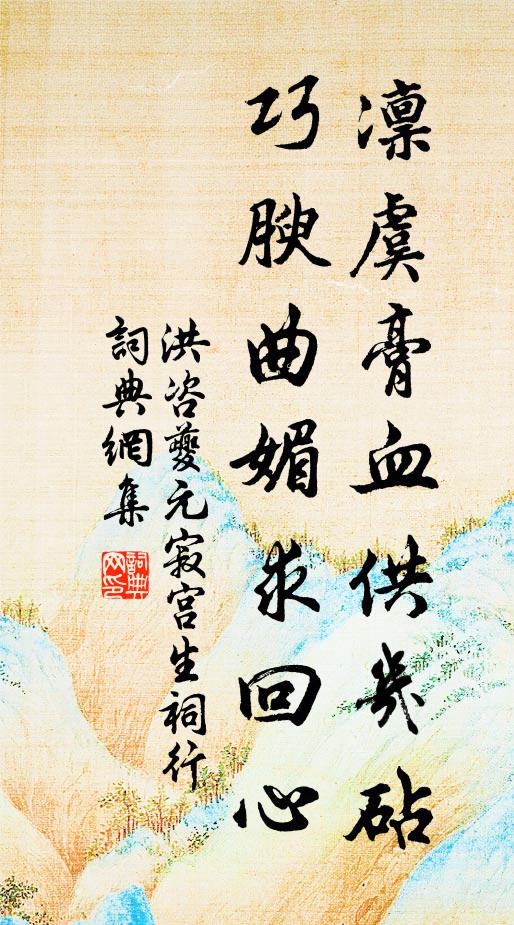 凜虞膏血供几砧
巧腴曲媚求回心
洪咨夔元寂宫生祠行
詞典網集